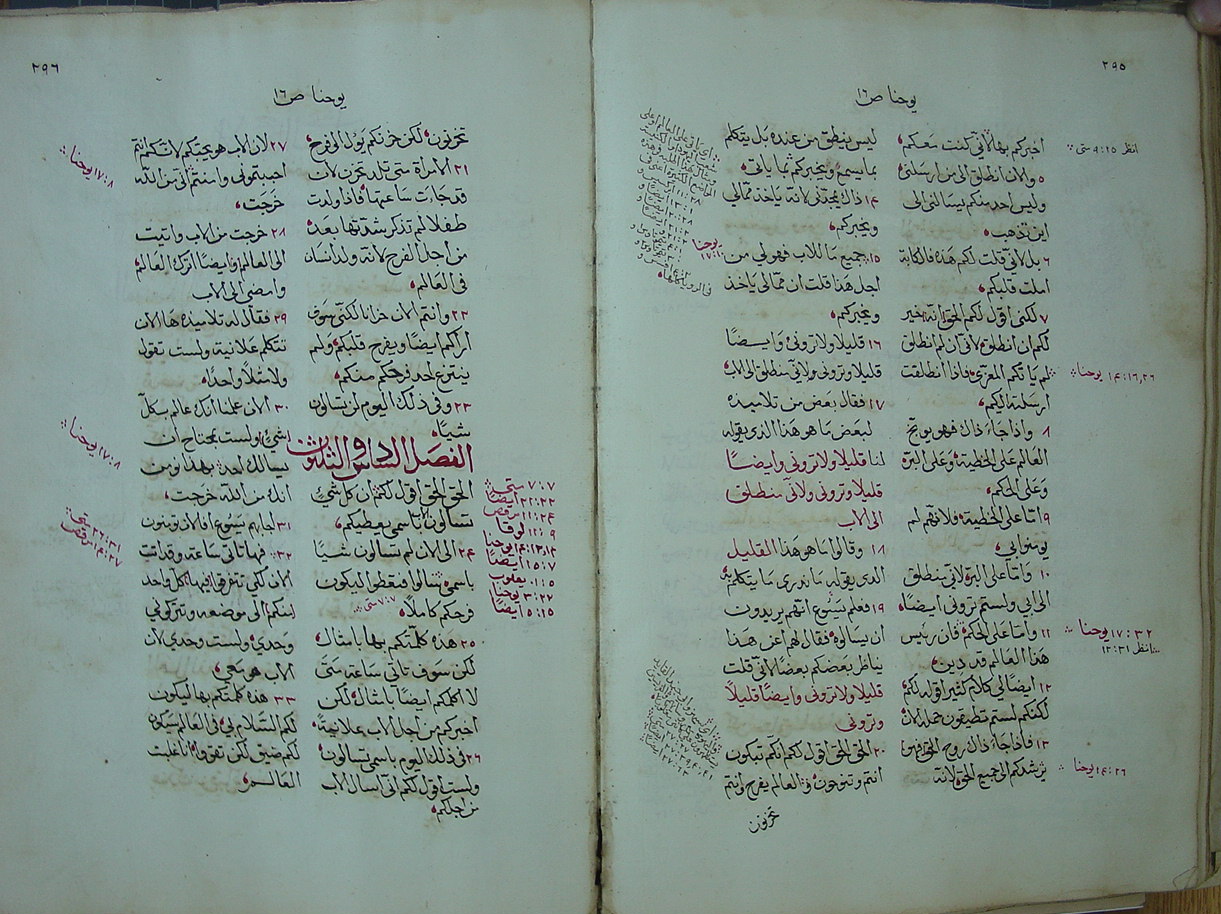 ٢٩٥
يوحنا ص١٦
انظر ٩:٢٥ متى
اخبركم بها لاني كنت معكم
٥ والان انطلق الى من ارسلني
وليس احد منكم يسالني الى
اين تذهب
٦ بل لاني قلت لكم هذه فالكابة
املت قلبكم
٧ لكني اقول لكم الحق انه خير
لكم ان انطلق لاني ان لم انطلق
لم ياتكم المعزي فاذا انطلقت
ارسلته اليكم
١٤:١٦,٢٦ يوحنا
٨ واذا جاء ذاك فهو يوبخ
العالم على الخطية وعلى البر
وعلى الحكم
٩ اما على الخطية فلانهم لم
يومنوا بي
١٠ واما على البر فلاني منطلق
الى ابي ولستم تروني ايضا
١١ واما على الحكم فان رئيس
هذا العالم قد دين
١٧:٣٢ يوحنا
انظر ١٢:٣١
١٢ ايضا لي كلام كثير اقوله لكم
لكنكم لستم تطيقون حمله الان
١٣ فاذا جاء ذاك روح الحق فهو
يرشدكم الى جميع الحق لانه
١٤:٢٦ يوحنا
ليس ينطق من عنده بل يتكلم
بما يسمع ويخبركم بما ياتي
١٤ ذاك يمجدني لانه ياخذ ممالي
ويخبركم
١٥ جميع ما للاب فهو لي من
اجل هذا قلت ان ممالي ياخذ
ويخبركم
يوحنا
١٧:١٠
١٦ قليلا ولا تروني وايضا
قليلا وتروني ولاني منطلق الى الاب
١٧ فقال بعض من تلاميذه
لبعض ما هو هذا الذي يقوله
لنا قليلا ولا تروني وايضا
قليلا وتروني ولاني منطلق
الى الاب
١٨ وقالوا ما هو هذا القليل
الذي يقوله ما ندري ما يتكلم به
١٩ فعلم يسوع انهم يريدون
ان يسالوه فقال لهم اعن هذا
يناظر بعضكم بعضا لاني قلت
قليلا ولا تروني وايضا قليلا
وتروني
٢٠ الحق الحق اقول لكم انكم تبكون
انتم وتنوحون والعالم يفرح وانتم
تحزنون
٢٩٦
يوحنا ص١٦
تحزنون لكن حزنكم يؤل الى فرح
٢١ الامراة متى تلد تحزن لان
قد جاءت ساعتها فاذا ولدت
طفلا لم تذكر شدتها بعده
من اجل الفرح لانه ولد انسان
في العالم
٢٢ وانتم الان حزانا لكني سوف
اراكم ايضا ويفرح قلبكم ولم
ينتزع احد فرحكم منكم
٢٣ وفي ذلك اليوم لن تسالون
شيا
الفصل السادس والثلثون
الحق الحق اقول لكم ان كل شي
تسالون الاب باسمي يعطيكم
٢٤ الى الان لم تسالون شيا
باسمي سالوا فتعطوا ليكون
فرحكم كاملا
٧:٧ متى
٢٢:٢٢ ايضا
١١:٢٤ مرقص
١١:٩ لوقا
١٤:١٣ يوحنا
١٥:٧ ايضا
١:٥ يعقوب
٣:٢٢ يوحنا
٥:١٥ ايضا
٢٥ هذه كلمتكم بها بامثال
لكن سوف تاتي ساعة متى
لا اكلمكم ايضا بامثال لكن
اخبركم من اجل الاب علانية
٢٦ في ذلك اليوم باسمي تسالون
ولست اقول لكم اني اسال الاب
من اجلكم
٢٧ لان الاب هو يحبكم لانكم انتم
احببتموني وامنتم اني من الله
خرجت
١٧:٨ يوحنا
٢٨ خرجت من الاب واتيت
الى العالم وايضا اترك العالم
وامضي الى الاب
٢٩ فقال له تلاميذه ها الان
تتكلم علانية ولست تقول
ولا مثلا واحدا
٣٠ الان علمنا انك عالم بكل
شي ولست بمحتاج ان
يسالك احد بهذا نومن
انك من الله خرجت
١٧:٨ يوحنا
٣١ اجابهم يسوع افالان تومنون
٣٢ فها تاتي ساعة وقد اتت
الان لكي تتفرقوا فيها كل واحد
منكم الى موضعه وتتركوني
وحدي ولست وحدي لان
الاب هو معي
٢٦:٣١ متى
١٤:٢٧ مرقص
٣٣ هذه كلمتكم بها ليكون
لكم السلام بي في العالم سيكون
لكم ضيق لكن تقووا انا غلبت
العالم